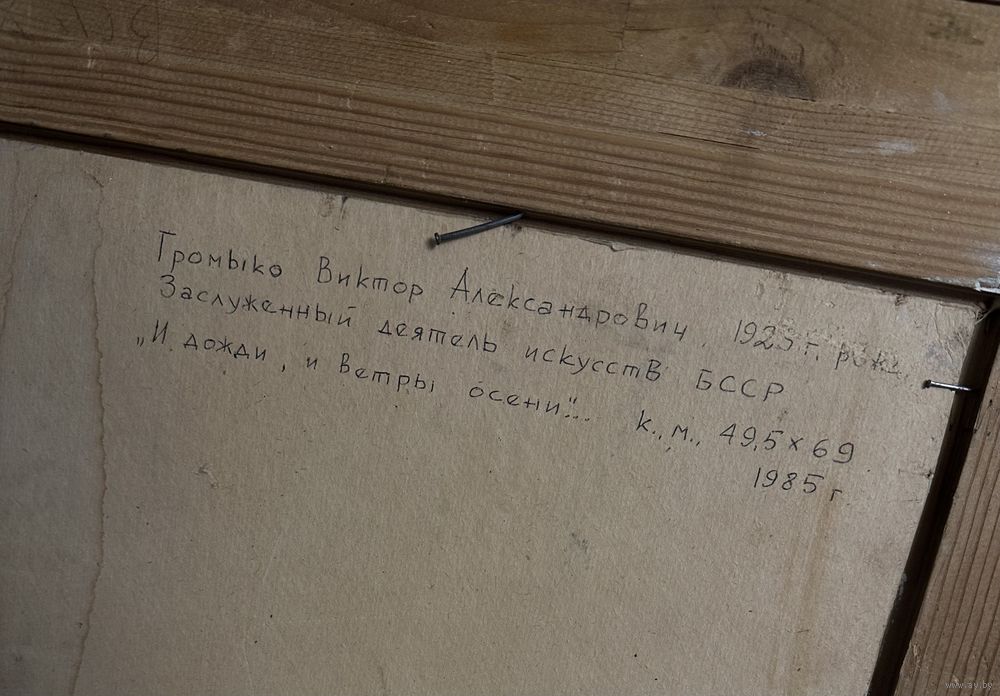 Громыко Виктор Александрович, 1923 г. рожд.
Заслуженный деятель искусств БССР
„И дожди, и ветры осени"... к., м., 49,5 х 69
1985 г
www.ay.by